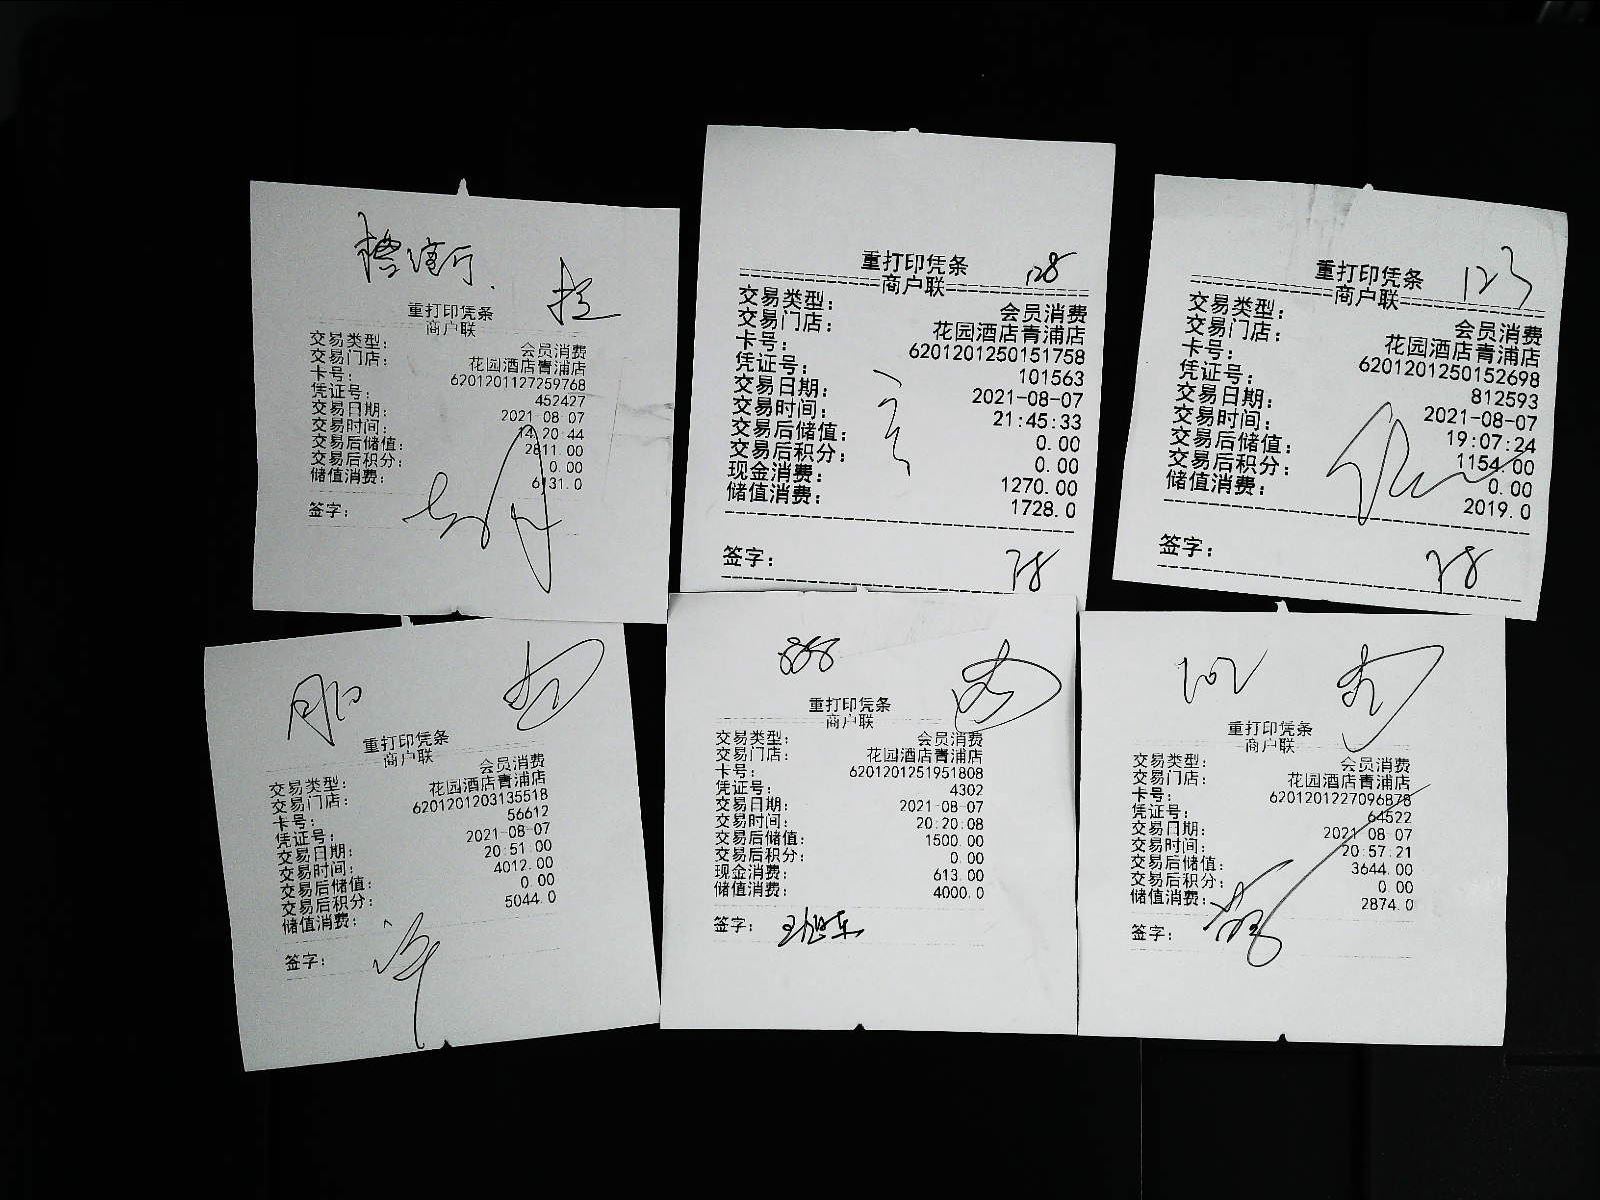 重打印凭条
商户联
交易类型: 会员消费
交易门店: 花园酒店青浦店
卡号: 6201201127259768
凭证号: 452427
交易日期: 2021-08-07
交易时间: 14:20:44
交易后储值: 2811.00
交易后积分: 0.00
储值消费: 6131.0
签字:
128
重打印凭条
商户联
交易类型: 会员消费
交易门店: 花园酒店青浦店
卡号: 6201201250151758
凭证号: 101563
交易日期: 2021-08-07
交易时间: 21:45:33
交易后储值: 0.00
交易后积分: 0.00
现金消费: 1270.00
储值消费: 1728.0
签字:
123
重打印凭条
商户联
交易类型: 会员消费
交易门店: 花园酒店青浦店
卡号: 6201201250152698
凭证号: 812593
交易日期: 2021-08-07
交易时间: 19:07:24
交易后储值: 1154.00
交易后积分: 0.00
储值消费: 2019.0
签字:
重打印凭条
商户联
交易类型: 会员消费
交易门店: 花园酒店青浦店
卡号: 6201201203135518
凭证号: 56612
交易日期: 2021-08-07
交易时间: 20:51:00
交易后储值: 4012.00
交易后积分: 0.00
储值消费: 5044.0
签字:
888
重打印凭条
商户联
交易类型: 会员消费
交易门店: 花园酒店青浦店
卡号: 6201201251951808
凭证号: 4302
交易日期: 2021-08-07
交易时间: 20:20:08
交易后储值: 1500.00
交易后积分: 0.00
现金消费: 613.00
储值消费: 4000.0
签字: 王旭东
102
重打印凭条
商户联
交易类型: 会员消费
交易门店: 花园酒店青浦店
卡号: 6201201227096878
凭证号: 64522
交易日期: 2021-08-07
交易时间: 20:57:21
交易后储值: 3644.00
交易后积分: 0.00
储值消费: 2874.0
签字: